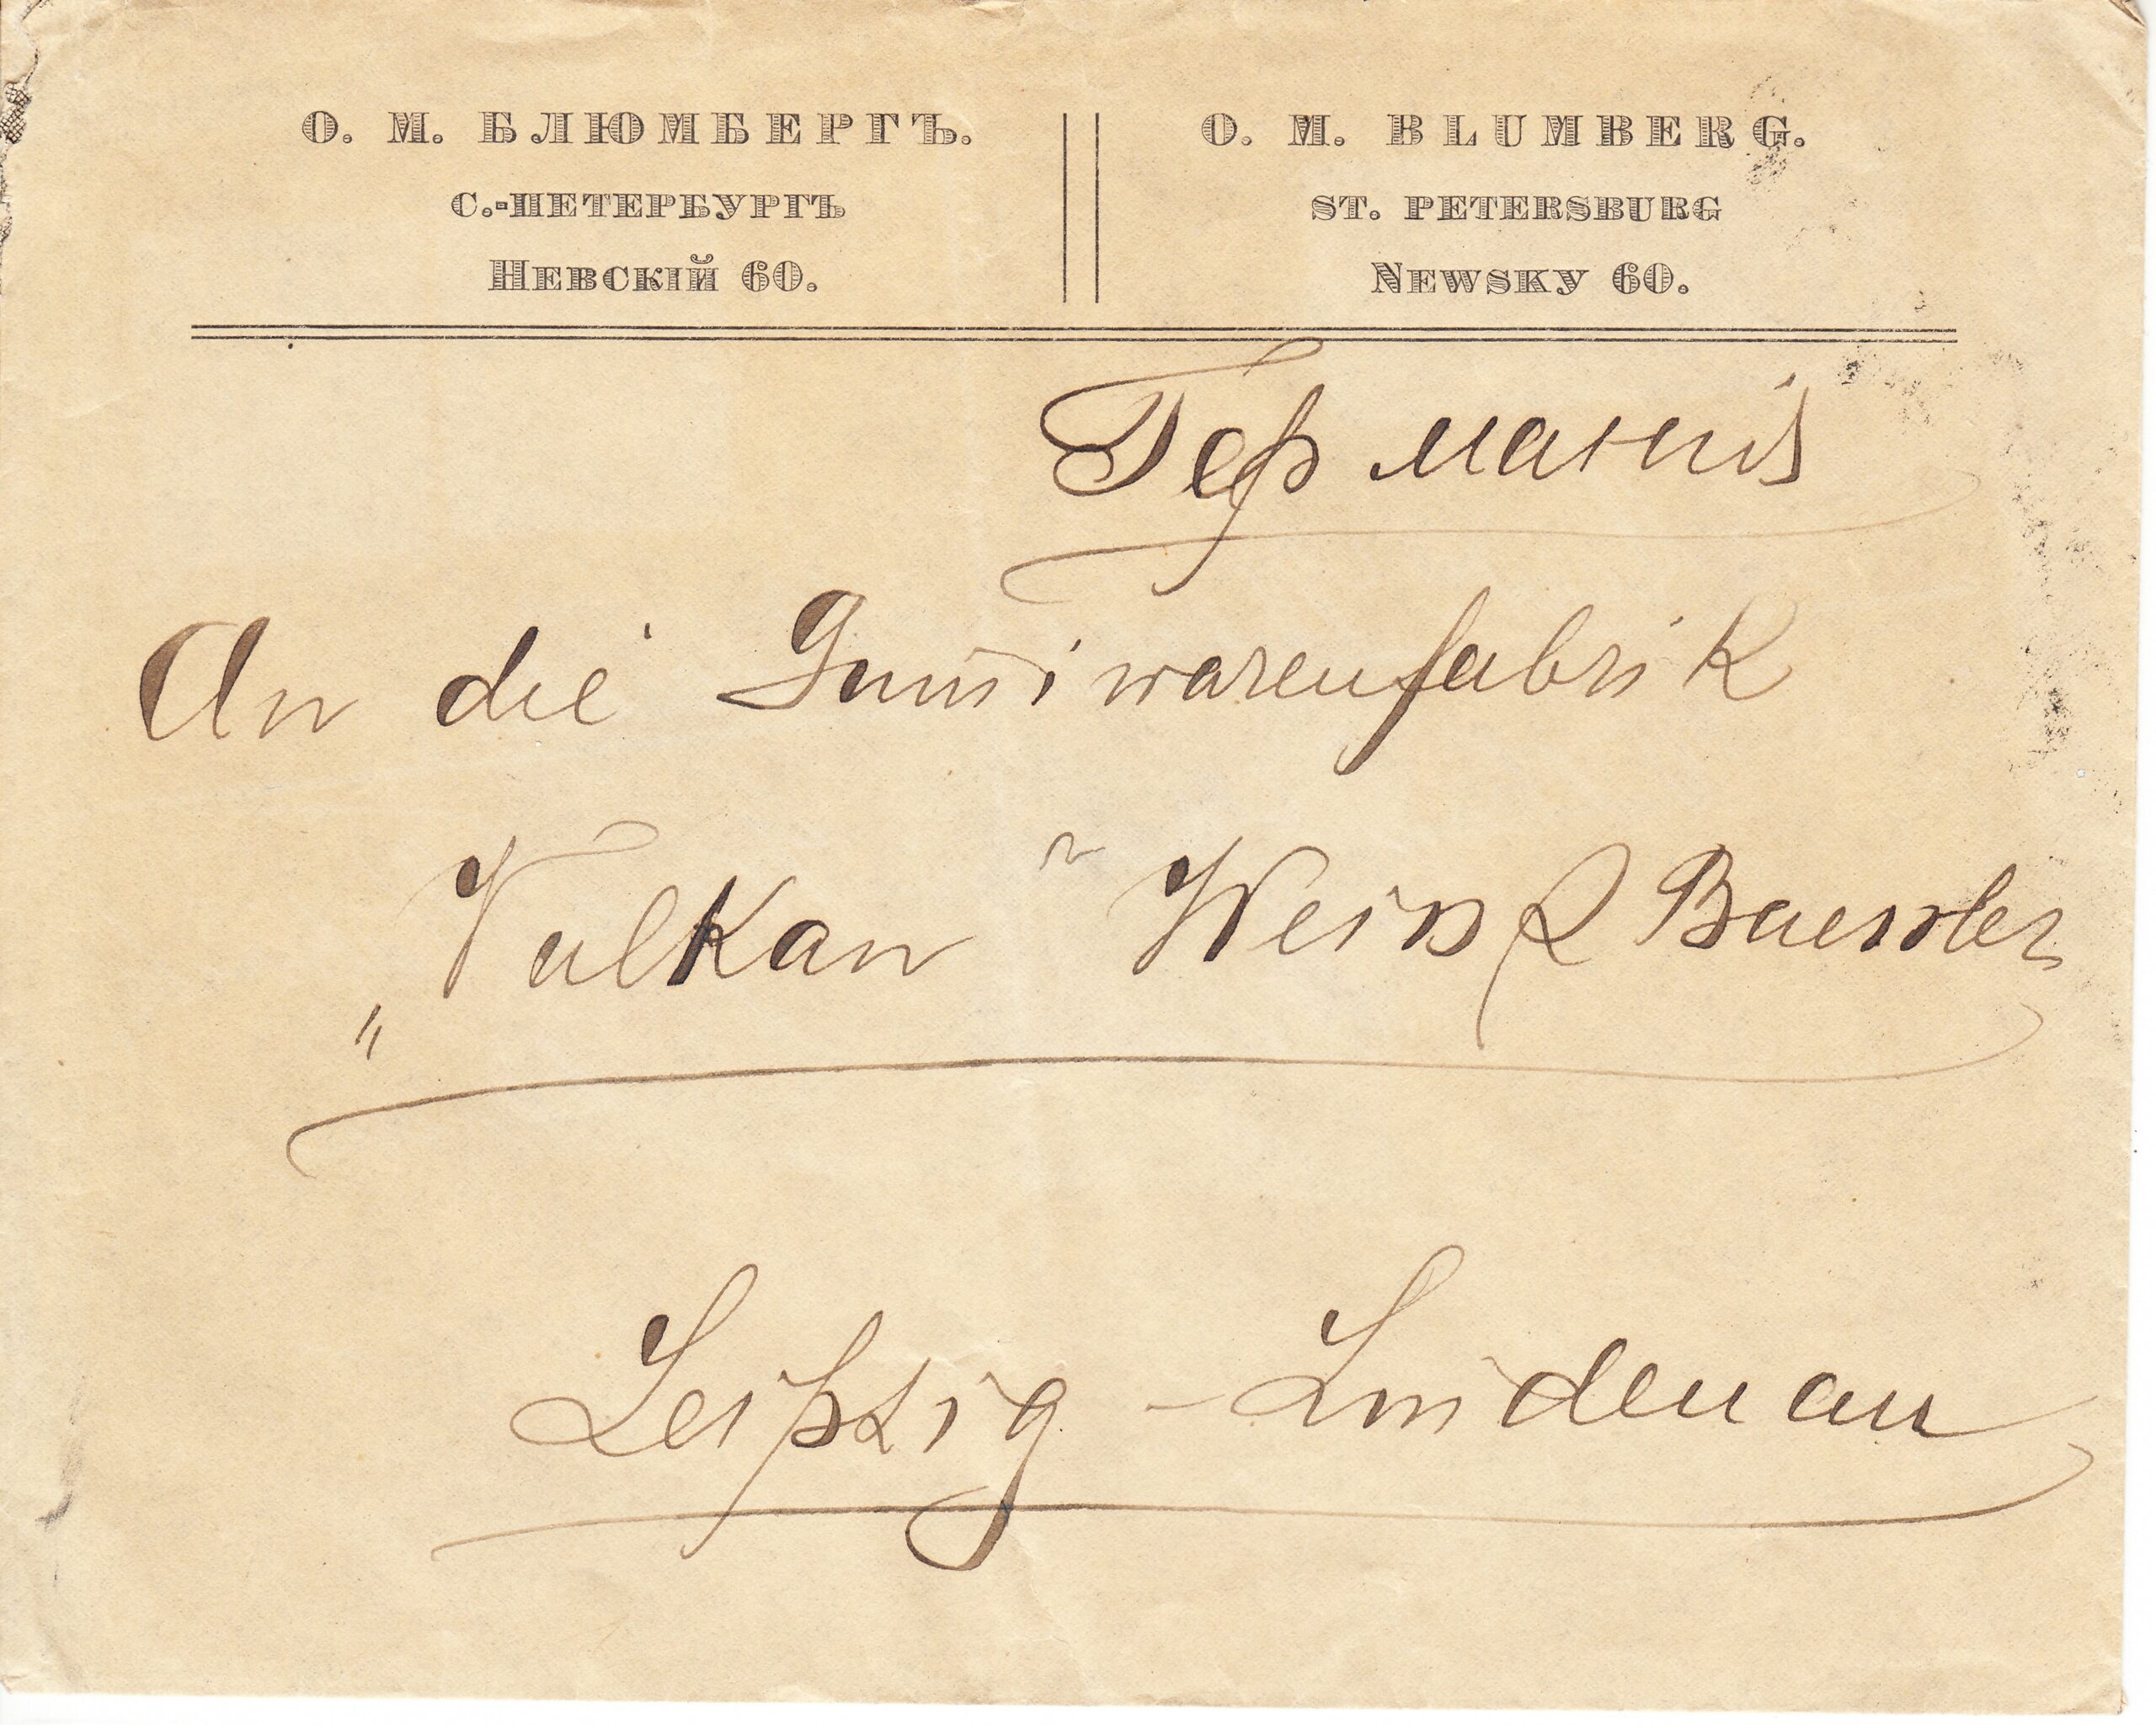 О. М. БЛЮМБЕРГЪ.
С.-ПЕТЕРБУРГЪ
Невскій 60.
O. M. BLUMBERG.
ST. PETERSBURG
Newsky 60.
Германія
An die Gum̄iwarenfabrik
„Vulkan" Weiss & Baessler
Leipzig - Lindenau